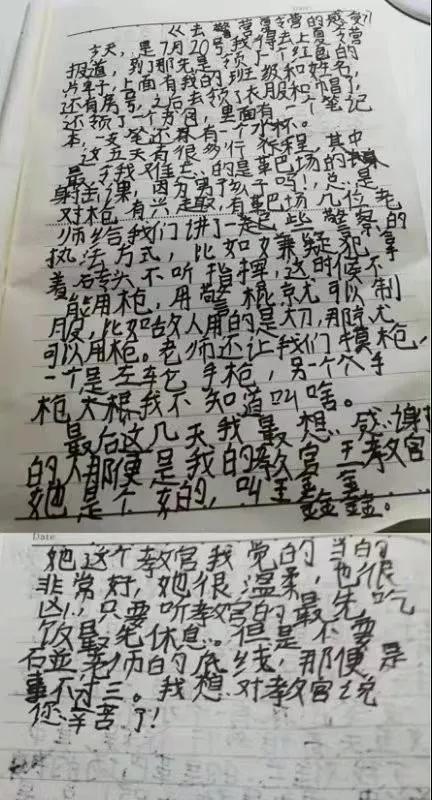 《去警营夏令营的感受》
今天,是7月20号,我得去上夏令营
报道,到了那先是领了个红色的
片子,上面有我的班级和姓名,
还有房号,之后去领了衣服和帽子,
还领了一个方包,里面有一个笔记
本,一支笔还有一个水杯。
这五天有很多行程,其中
最令我难忘的是革巴场的
射击课,因为男孩子吗!,总是
对枪有兴趣,有革巴场几位老
师给我们讲了一些警察的
执法方式,比如嫌疑犯拿
着石专头不听指挥,这时候不
能用枪,用警棍京尤可以制
服,比如敌人用的是大刀,那京尤
可以用枪。老师还让我们摸枪,
一个是左车仑手枪,另一个手
枪大概我不知道叫啥。
最后这几天我最想感谢
的人那便是我的教官王教官
她是个女的,叫王鑫鑫。
她这个教官我觉的当的
非常好,她很温柔,也很
凶,只要听教官的最先吃
饭最先休息。但是不要
石並老师的底线,那便是
事不过三。我想对教官说
您辛苦了!